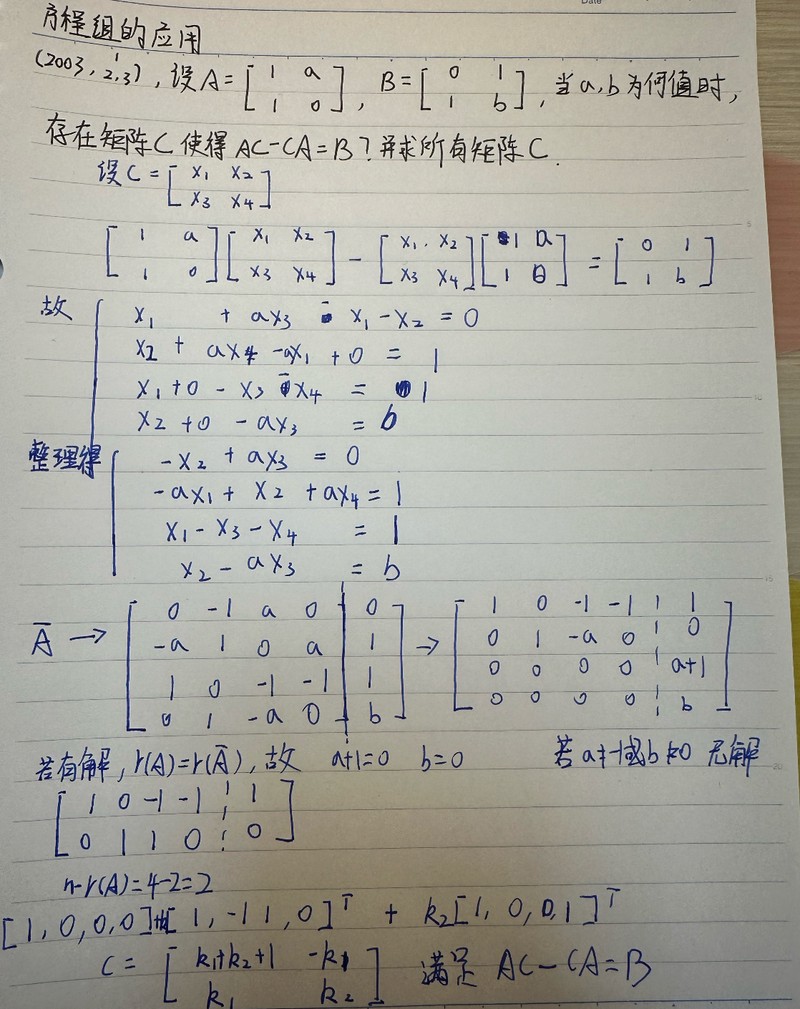 Date
方程组的应用
(2003, 1, 2, 3), 设A=[1 a; 1 0], B=[0 1; 1 b], 当a,b为何值时,
存在矩阵C使得AC-CA=B?并求所有矩阵C.
设C=[x1 x2; x3 x4]
[1 a; 1 0][x1 x2; x3 x4] - [x1 x2; x3 x4][1 a; 1 0] = [0 1; 1 b]
故 x1 + ax3 - x1 - x2 = 0
x2 + ax4 - ax1 + 0 = 1
x1 + 0 - x3 - x4 = 1
x2 + 0 - ax3 = b
整理得 -x2 + ax3 = 0
-ax1 + x2 + ax4 = 1
x1 - x3 - x4 = 1
x2 - ax3 = b
Ā → [0 -1 a 0 | 0; -a 1 0 a | 1; 1 0 -1 -1 | 1; 0 1 -a 0 | b] → [1 0 -1 -1 | 1; 0 1 -a 0 | 0; 0 0 0 0 | a+1; 0 0 0 0 | b]
若有解, r(A)=r(Ā), 故 a+1=0 b=0 若a≠-1或b≠0 无解
[1 0 -1 -1 | 1; 0 1 1 0 | 0]
n-r(A)=4-2=2
[1,0,0,0]+k1[1,-1 1,0]^T + k2[1,0,0,1]^T
C=[k1+k2+1 -k1; k1 k2] 满足 AC-CA=B